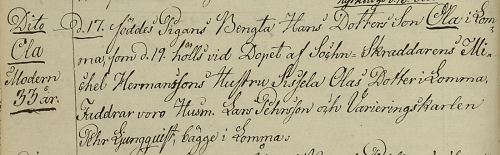 Dito
Ola
Modern
33 år.
d.17. föddes Pigans Bengta Hans Dotters Son Ola i Lom-
ma, som d.19. hölls vid Dopet af Sochn-Skräddarens Mi-
chel Hermanssons Hustru Sissela Olas Dotter i Lomma.
Faddrar voro Husm. Lars Pehrsson och Värfningskarlen
Pehr Ljungquist, bägge i Lomma.